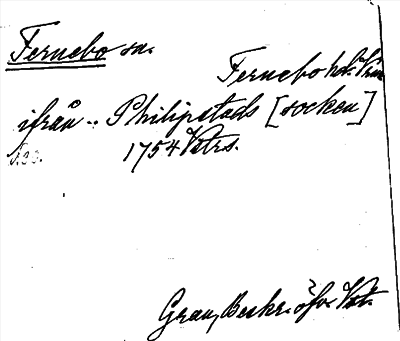 Fernebo sn.
Fernebo hd. Vrm
ifrån .. Philipstads [socken]
1754 Vetrs.
Grau, Beskr. öfv. Vst.